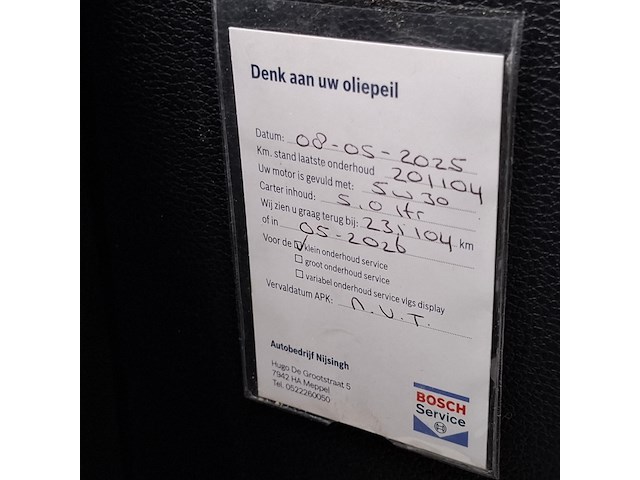 Denk aan uw oliepeil
Datum: 08-05-2025
Km. stand laatste onderhoud 201104
Uw motor is gevuld met: 5W30
Carter inhoud: 5.0 ltr
Wij zien u graag terug bij: 231104 km
of in 05-2026
Voor de ☑ klein onderhoud service
☐ groot onderhoud service
☐ variabel onderhoud service vlgs display
Vervaldatum APK: n.v.t.
Autobedrijf Nijsingh
Hugo De Grootstraat 5
7942 HA Meppel
Tel. 0522260050
BOSCH
Service